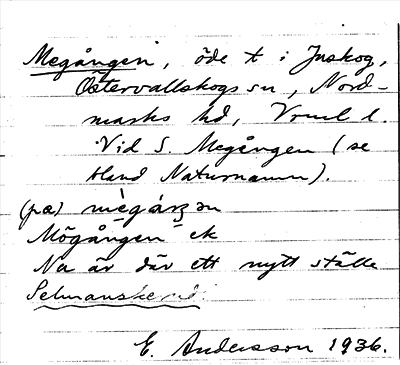 Megången, öde t i Inskog,
Östervallskogs sn, Nord-
marks hd, Vrml l.
Vid S. Megången (se
bland Naturnamn).
(pα) mègáŋən
Mögången ek
Nu är där ett nytt ställe
Selmanskerud.
E. Andersson 1936.